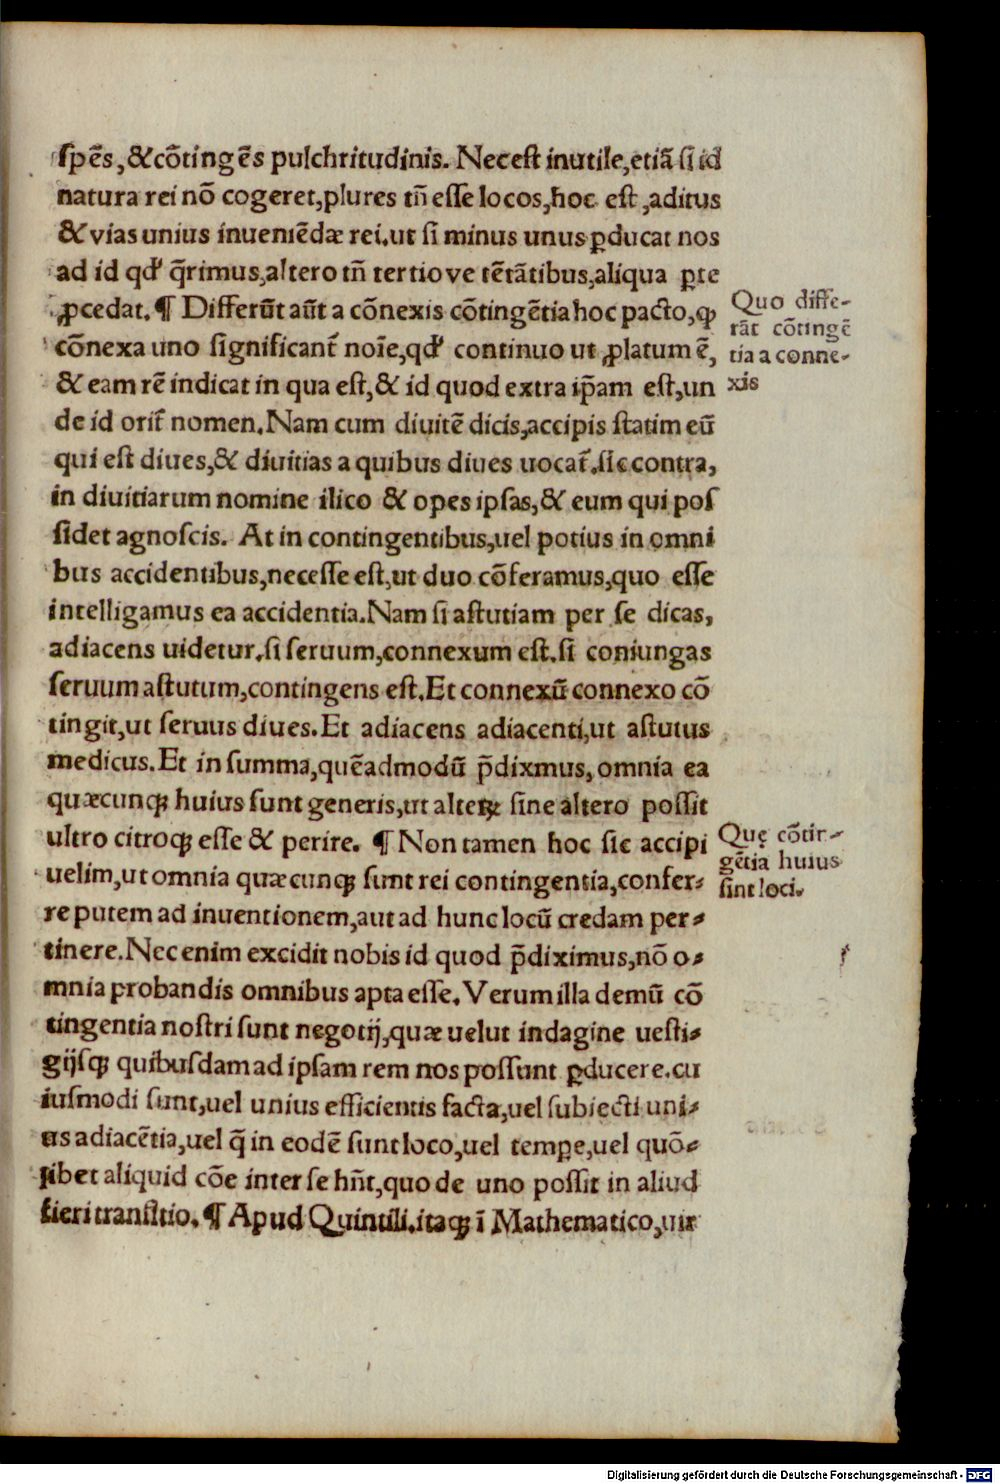 ſpēs, &cōtingēs pulchritudinis. Nec eſt inutile, etiā ſi id
natura rei nō cogeret, plures tñ eſſe locos, hoc eſt, aditus
& vias unius inueniēdæ rei. ut ſi minus unus ꝑducat nos
ad id qđ q̄rimus, altero tñ tertiove tētātibus, aliqua ꝑte
ꝓcedat. ¶ Differūt aūt a cōnexis cōtingētia hoc pacto, ꝙ
cōnexa uno ſignificant᷑ noīe, qđ continuo ut ꝓlatum ē,
& eam rē indicat in qua eſt, & id quod extra ip̄am eſt, un
de id orit᷑ nomen. Nam cum diuitē dicis, accipis ſtatim eū
qui eſt diues, & diuitias a quibus diues uocat᷑. ſic contra,
in diuitiarum nomine ilico & opes ipſas, & eum qui poſ
ſidet agnoſcis. At in contingentibus, uel potius in omni
bus accidentibus, neceſſe eſt, ut duo cōferamus, quo eſſe
intelligamus ea accidentia. Nam ſi aſtutiam per ſe dicas,
adiacens uidetur. ſi ſeruum, connexum eſt. ſi coniungas
ſeruum aſtutum, contingens eſt. Et connexū connexo cō
tingit, ut ſeruus diues. Et adiacens adiacenti, ut aſtutus
medicus. Et in ſumma, quēadmodū p̄dixmus, omnia ea
quæcunqꝫ huius ſunt generis, ut alteꝝ ſine altero poſſit
ultro citroqꝫ eſſe & perire. ¶ Non tamen hoc ſic accipi
uelim, ut omnia quæcunqꝫ ſunt rei contingentia, confer⸗
re putem ad inuentionem, aut ad hunc locū credam per⸗
tinere. Nec enim excidit nobis id quod p̄diximus, nō o⸗
mnia probandis omnibus apta eſſe. Verum illa demū cō
tingentia noſtri ſunt negotij, quæ uelut indagine ueſti⸗
gijſqꝫ quibuſdam ad ipſam rem nos poſſunt ꝑducere. cu
iuſmodi ſunt, uel unius efficientis facta, uel ſubiecti uni⸗
us adiacētia, uel q̄ in eodē ſunt loco, uel temꝑe, uel quō⸗
libet aliquid cōe inter ſe hñt, quo de uno poſſit in aliud
fieri tranſitio. ¶ Apud Quintili. itaqꝫ ī Mathematico, uir
Quo diffe⸗
rāt cōtingē
tia a conne⸗
xis
Quę cōtin⸗
gētia huius
ſint loci.
Digitalisierung gefördert durch die Deutsche Forschungsgemeinschaft - DFG